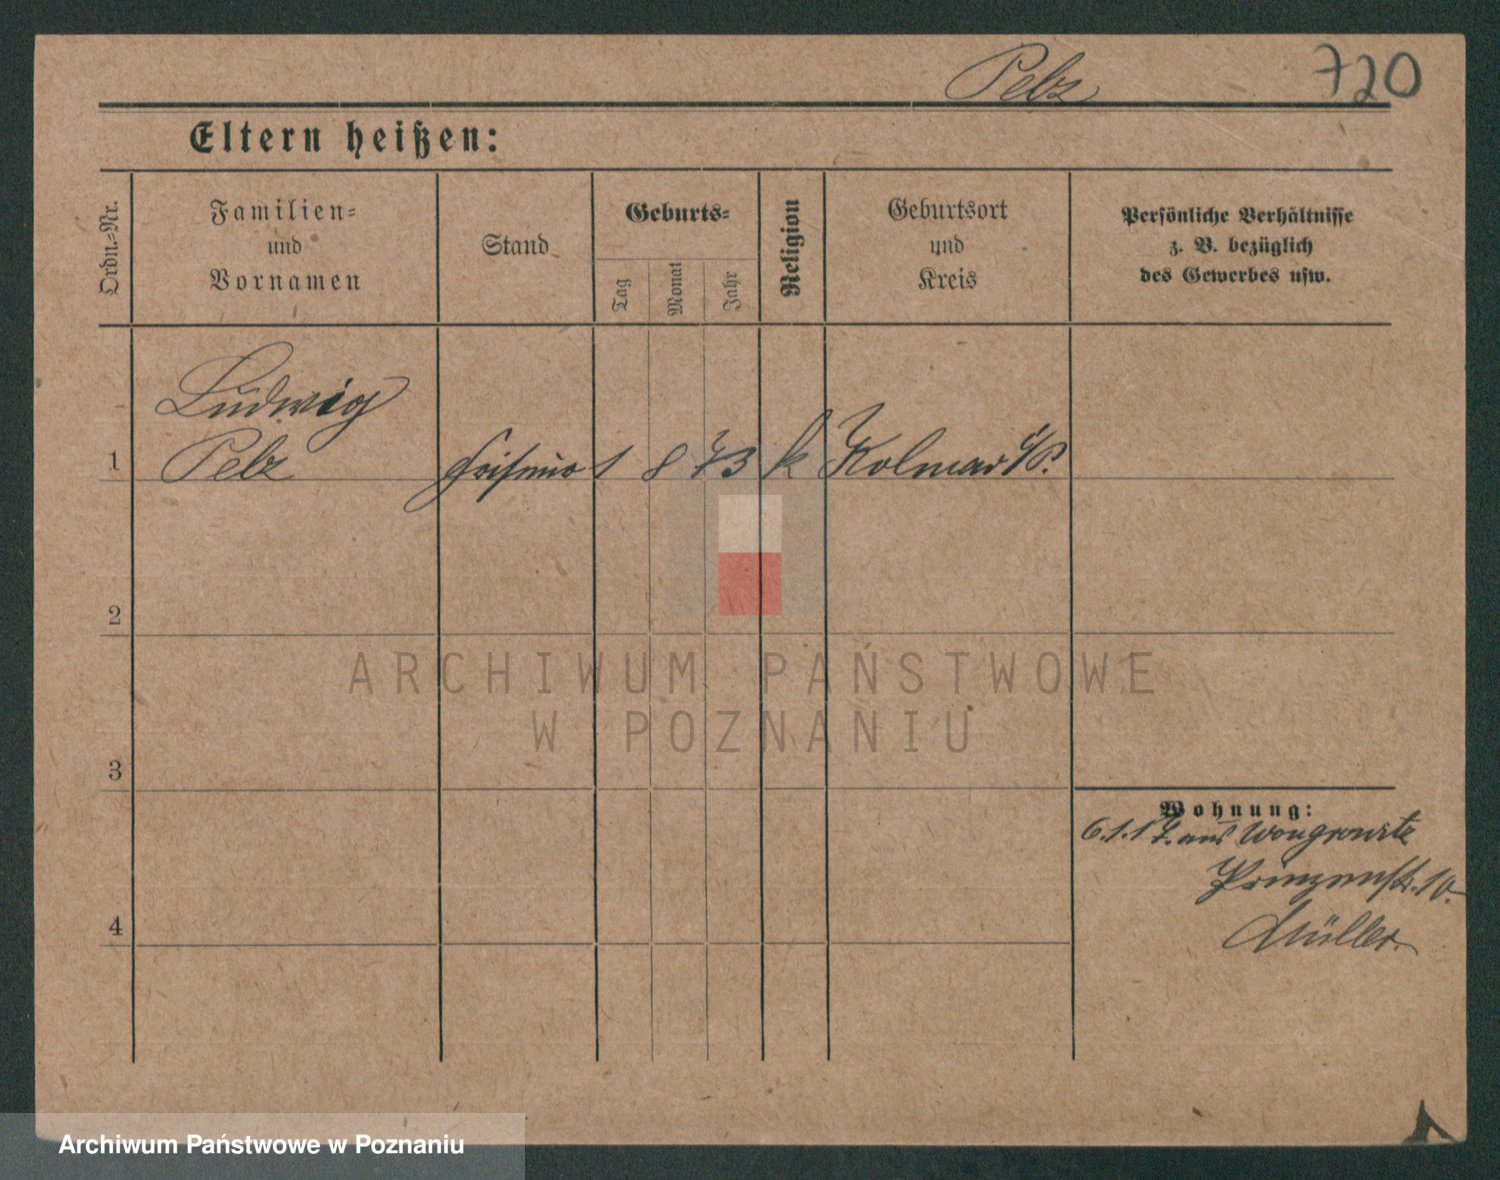 Pelz 720
Eltern heißen:
Ordn.-Nr.
Familien-
und
Vornamen
Stand
Geburts-
Tag
Monat
Jahr
Religion
Geburtsort
und
Kreis
Persönliche Verhältnisse
z. B. bezüglich
des Gewerbes usw.
Ludwig
1 Pelz Friseur 1 8 73 k Kolmar i/P.
2
ARCHIWUM PAŃSTWOWE
W POZNANIU
3
Wohnung:
6.1.17. aus Wongrowitz
Prinzenstr. 10.
Müller.
4
Archiwum Państwowe w Poznaniu